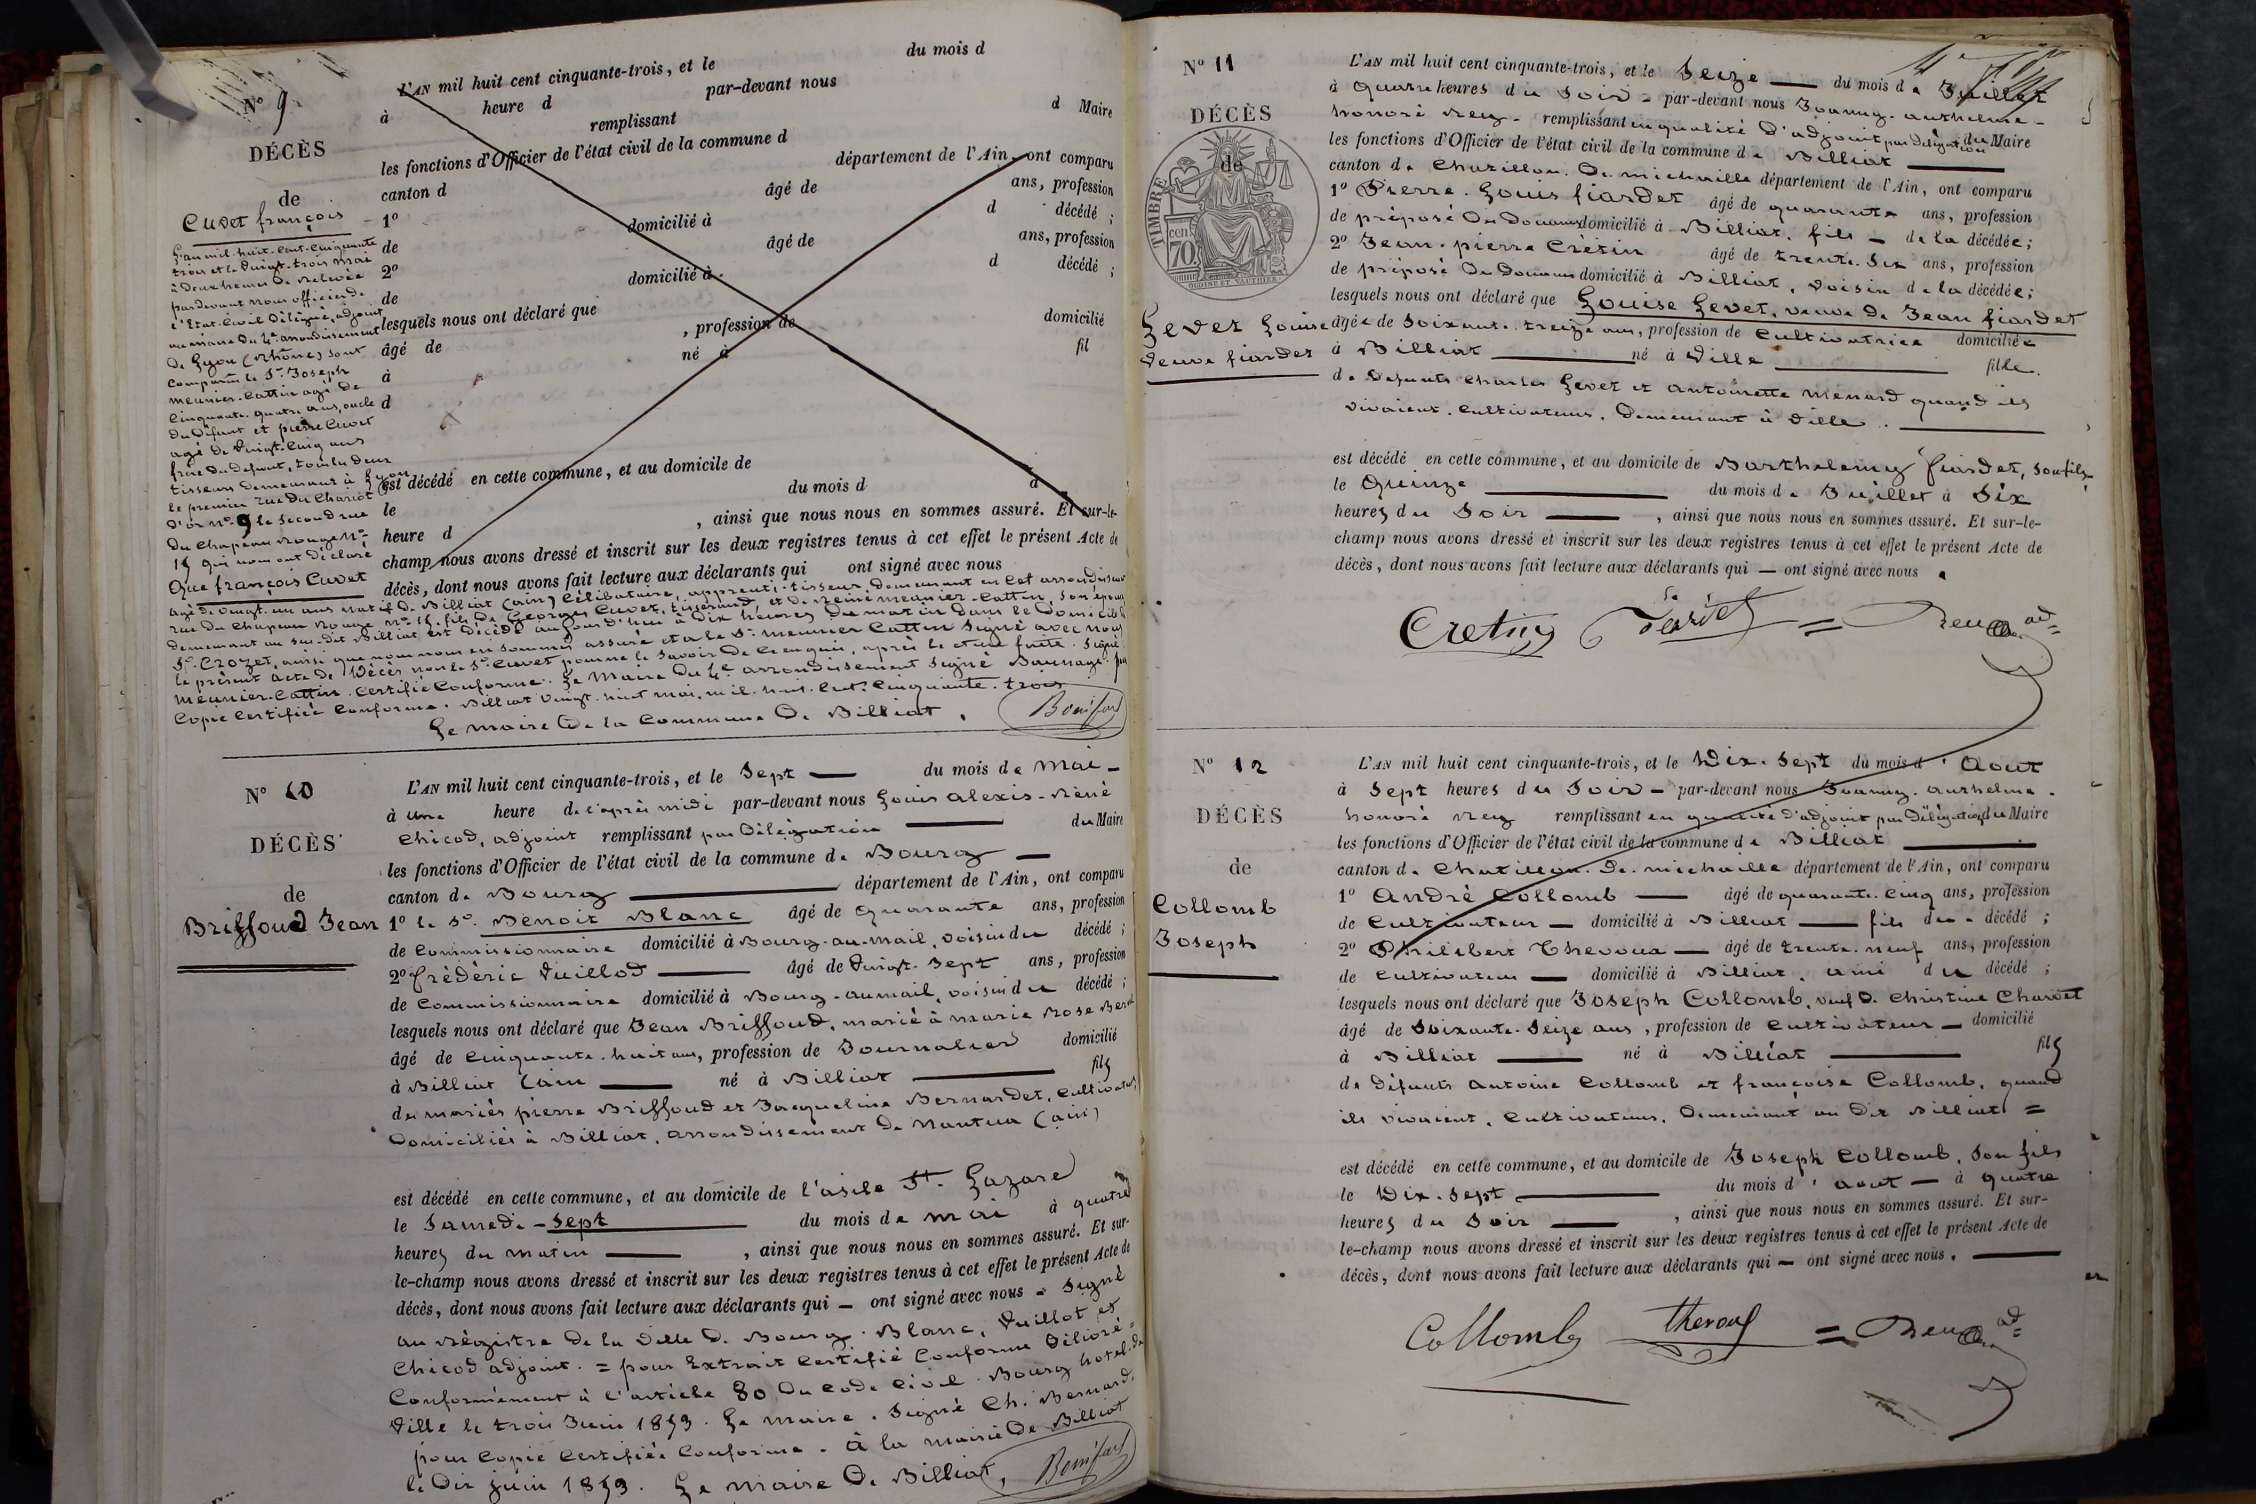 N° 9.
DÉCÈS
de
Cuvet françois
L'an mil-huit-cent-cinquante
trois et le vingt-trois mai
à deux heures de relevée
pardevant nous officier de
l'Etat-Civil délégué, adjoint
au maire du 4e arrondissement
de Lyon (Rhône) sont
comparus le Sr. Joseph
meunier-Cattin agé de
Cinquante quatre ans, oncle
du défunt et pierre Cuvet
agé de vingt-Cinq ans
frère du défunt, tous les deux
tisseurs demeurant à Lyon
le premier rue du Chariot
d'or n° 9 le second rue
du Chapeau Rouge N°
15 qui nous ont déclaré
Que françois Cuvet
L'AN mil huit cent cinquante-trois, et le du mois d
à heure d par-devant nous
remplissant d Maire
les fonctions d'Officier de l'état civil de la commune d
canton d département de l'Ain, ont comparu
1° âgé de ans, profession
de domicilié à d décédé ;
2° âgé de ans, profession
de domicilié à d décédé ;
lesquels nous ont déclaré que
âgé de , profession de domicilié
à né à fil
d
est décédé en cette commune, et au domicile de
le du mois d à
heure d , ainsi que nous nous en sommes assuré. Et sur-le-
champ nous avons dressé et inscrit sur les deux registres tenus à cet effet le présent Acte de
décès, dont nous avons fait lecture aux déclarants qui ont signé avec nous
agé de vingt-un ans natif de Billiat (ain) Célibataire, apprenti-tisseur demeurant en cet arrondissement
rue du Chapeau Rouge N° 15, fils de Georges Cuvet, tisserand, et de Reine meunier-Cattin, son épouse
demeurant au sus-dit Billiat, est décédé aujourd'hui à dix heures du matin dans le domicile
Sr. Crozet, ainsi que nous nous en sommes assuré et a le Sr. meunier Cattin signé avec nous
le présent acte de Décès non le Sr. Cuvet pour ne le savoir de ce enquis, après lecture faite. Signé
meunier-Cattin. Certifié Conforme. Le Maire du 4e arrondissement Signé
Copie Certifiée Conforme. Billiat vingt-huit mai, mil-huit-cent-cinquante-trois
Le maire de la Commune de Billiat,
N° 10
DÉCÈS
de
Briffoud Jean
L'AN mil huit cent cinquante-trois, et le Sept du mois de Mai
à une heure de l'après midi par-devant nous Louis Alexis-Réné
Chicod, adjoint remplissant par Délégation du Maire
les fonctions d'Officier de l'état civil de la commune de Bourg
canton de Bourg département de l'Ain, ont comparu
1° le Sr. Benoit Blanc âgé de Quarante ans, profession
de Commissionnaire domicilié à Bourg-au-mail, voisin du décédé ;
2° frédéric Vuillod âgé de Vingt-Sept ans, profession
de Commissionnaire domicilié à Bourg-au mail, voisin du décédé ;
lesquels nous ont déclaré que Jean Briffoud, marié à marie Rose
âgé de Cinquante-huit ans, profession de Journalier domicilié
à Billiat (ain né à Billiat fils
des mariés pierre Briffoud et Jacqueline Bernardet, Cultivateurs,
Domiciliés à Billiat, arrondissement de Nantua (ain)
est décédé en cette commune, et au domicile de l'asile St. Lazare
le Samedi - Sept du mois de Mai à quatre
heures du matin , ainsi que nous nous en sommes assuré. Et sur-
le-champ nous avons dressé et inscrit sur les deux registres tenus à cet effet le présent Acte de
décès, dont nous avons fait lecture aux déclarants qui ont signé avec nous - Signé
au Régistre de la Ville de Bourg. Blanc, Vuillot et
Chicod adjoint. = pour Extrait Certifié Conforme Délivré
Conformément à l'article 80 du Code Civil. Bourg hotel-de
Ville le trois Juin 1853. Le maire. Signé Ch. Bernard.
pour Copie Certifiée Conforme. à la mairie de Billiat
le Dix juin 1853. Le Maire de Billiat,
N° 11
DÉCÈS
de
TIMBRE
cen
70
Levet Louise
veuve fiardet
L'AN mil huit cent cinquante-trois, et le Seize du mois de Juillet
à Quatre heures du Soir - par-devant nous Joanny-anthelme-
honoré Rey - remplissant en qualité d'adjoint par Délégation du Maire
les fonctions d'Officier de l'état civil de la commune de Billiat
canton de Chatillon-De-michaille département de l'Ain, ont comparu
1° Pierre-Louis fiardet âgé de quarante ans, profession
de préposé des Douanes domicilié à Billiat, fils de la décédée ;
2° Jean-pierre Cretin âgé de trente-Six ans, profession
de préposé des Douanes domicilié à Billiat, voisin de la décédée ;
lesquels nous ont déclaré que Louise Levet, veuve de Jean fiardet
âgée de Soixante-treize ans, profession de Cultivatrice domiciliée
à Billiat né à Ville fille
de défunts Charles Levet et antoinette menard quand ils
vivaient, Cultivateurs, Demeurant à Ville.
est décédé en cette commune, et au domicile de Barthelemy fiardet, son fils,
le Quinze du mois de Juillet à Six
heures du Soir , ainsi que nous nous en sommes assuré. Et sur-le-
champ nous avons dressé et inscrit sur les deux registres tenus à cet effet le présent Acte de
décès, dont nous avons fait lecture aux déclarants qui ont signé avec nous
Cretin
N° 12
DÉCÈS
de
Collomb
Joseph
L'AN mil huit cent cinquante-trois, et le Dix-Sept du mois d'Aout
à Sept heures du Soir - par-devant nous Joanny-anthelme-
honoré Rey remplissant en qualité d'adjoint par Délégation du Maire
les fonctions d'Officier de l'état civil de la commune de Billiat
canton de Chatillon-De-michaille département de l'Ain, ont comparu
1° André Collomb âgé de quarante-Cinq ans, profession
de Cultivateur domicilié à Billiat fils du décédé ;
2° Philibert Thevoux âgé de trente-neuf ans, profession
de Cultivateur domicilié à Billiat, ami du décédé ;
lesquels nous ont déclaré que Joseph Collomb, veuf de Christine Charvet
âgé de Soixante-Seize ans, profession de Cultivateur domicilié
à Billiat né à Billiat fils
de défunts Antoine Collomb et françoise Collomb, quand
ils vivaient, Cultivateurs, Demeurant au dit Billiat =
est décédé en cette commune, et au domicile de Joseph Collomb, son fils
le Dix-Sept du mois d'aout à quatre
heures du Soir , ainsi que nous nous en sommes assuré. Et sur-
le-champ nous avons dressé et inscrit sur les deux registres tenus à cet effet le présent Acte de
décès, dont nous avons fait lecture aux déclarants qui ont signé avec nous.
Collomb